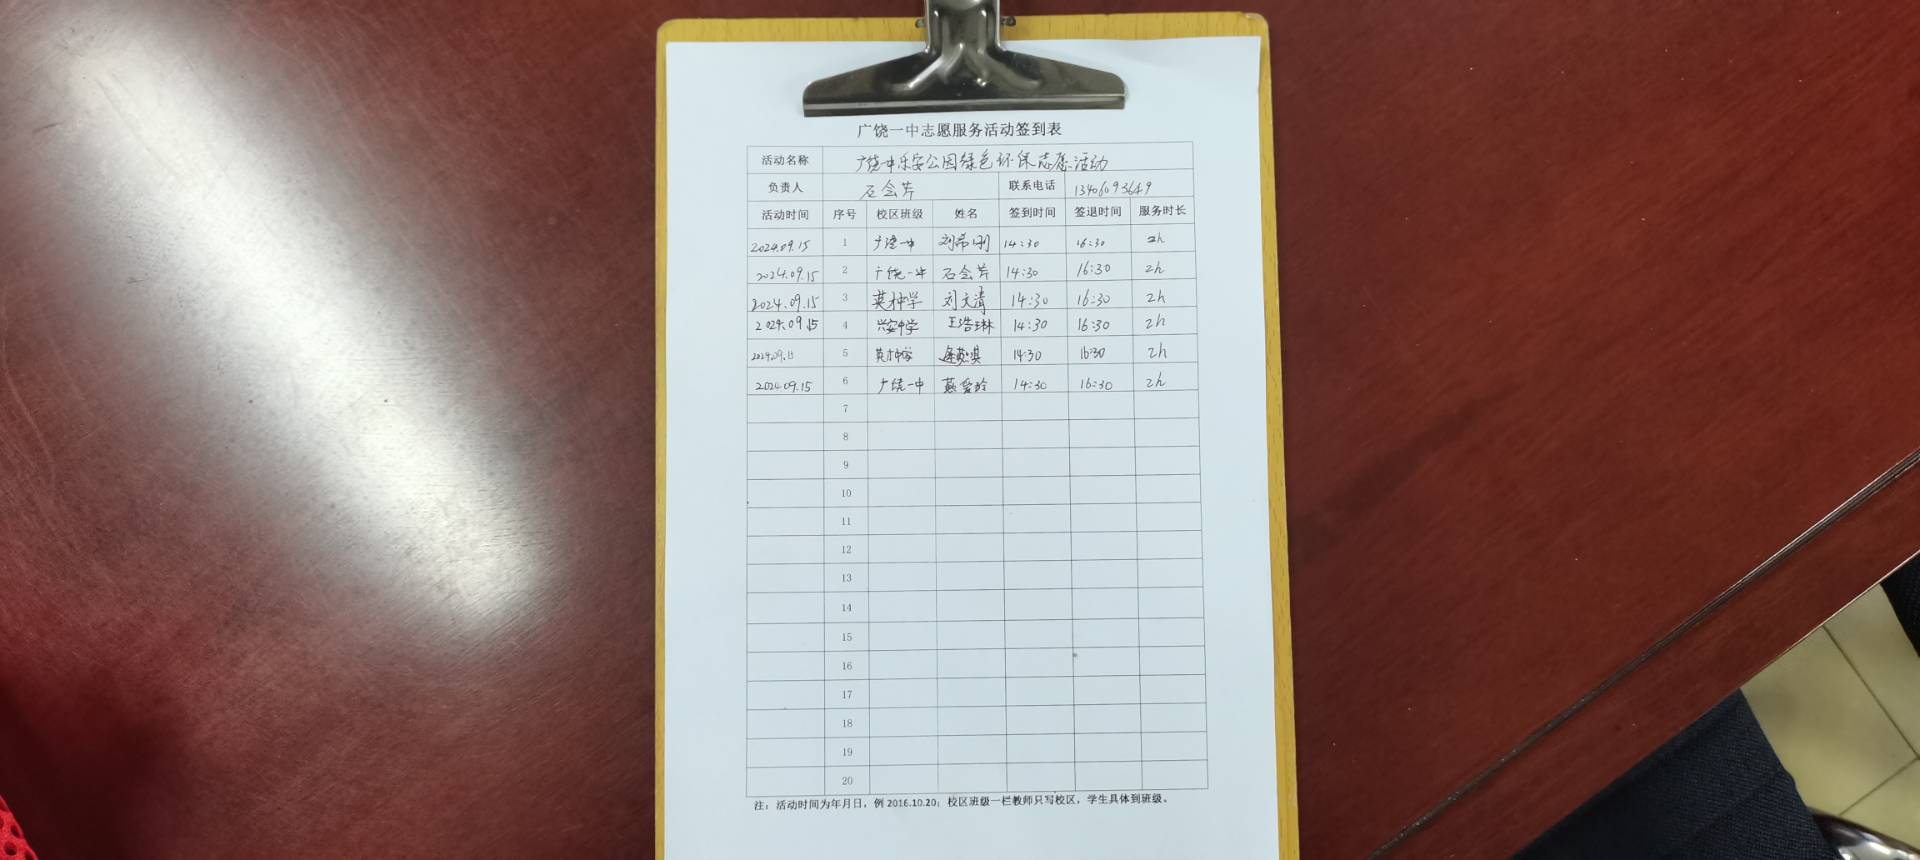 广饶一中志愿服务活动签到表
活动名称 广饶一中乐安公园绿色环保志愿活动
负责人 石会芹 联系电话 13406093649
活动时间 序号 校区班级 姓名 签到时间 签退时间 服务时长
2024.09.15 1 广饶一中 刘希刚 14:30 16:30 2h
2024.09.15 2 广饶一中 石会芹 14:30 16:30 2h
2024.09.15 3 英才中学 刘文清 14:30 16:30 2h
2024.09.15 4 兴安中学 王浩琳 14:30 16:30 2h
2024.09.15 5 英才中学 14:30 16:30 2h
2024.09.15 6 广饶一中 燕爱玲 14:30 16:30 2h
7
8
9
10
11
12
13
14
15
16
17
18
19
20
注：活动时间为年月日，例 2016.10.20；校区班级一栏教师只写校区，学生具体到班级。